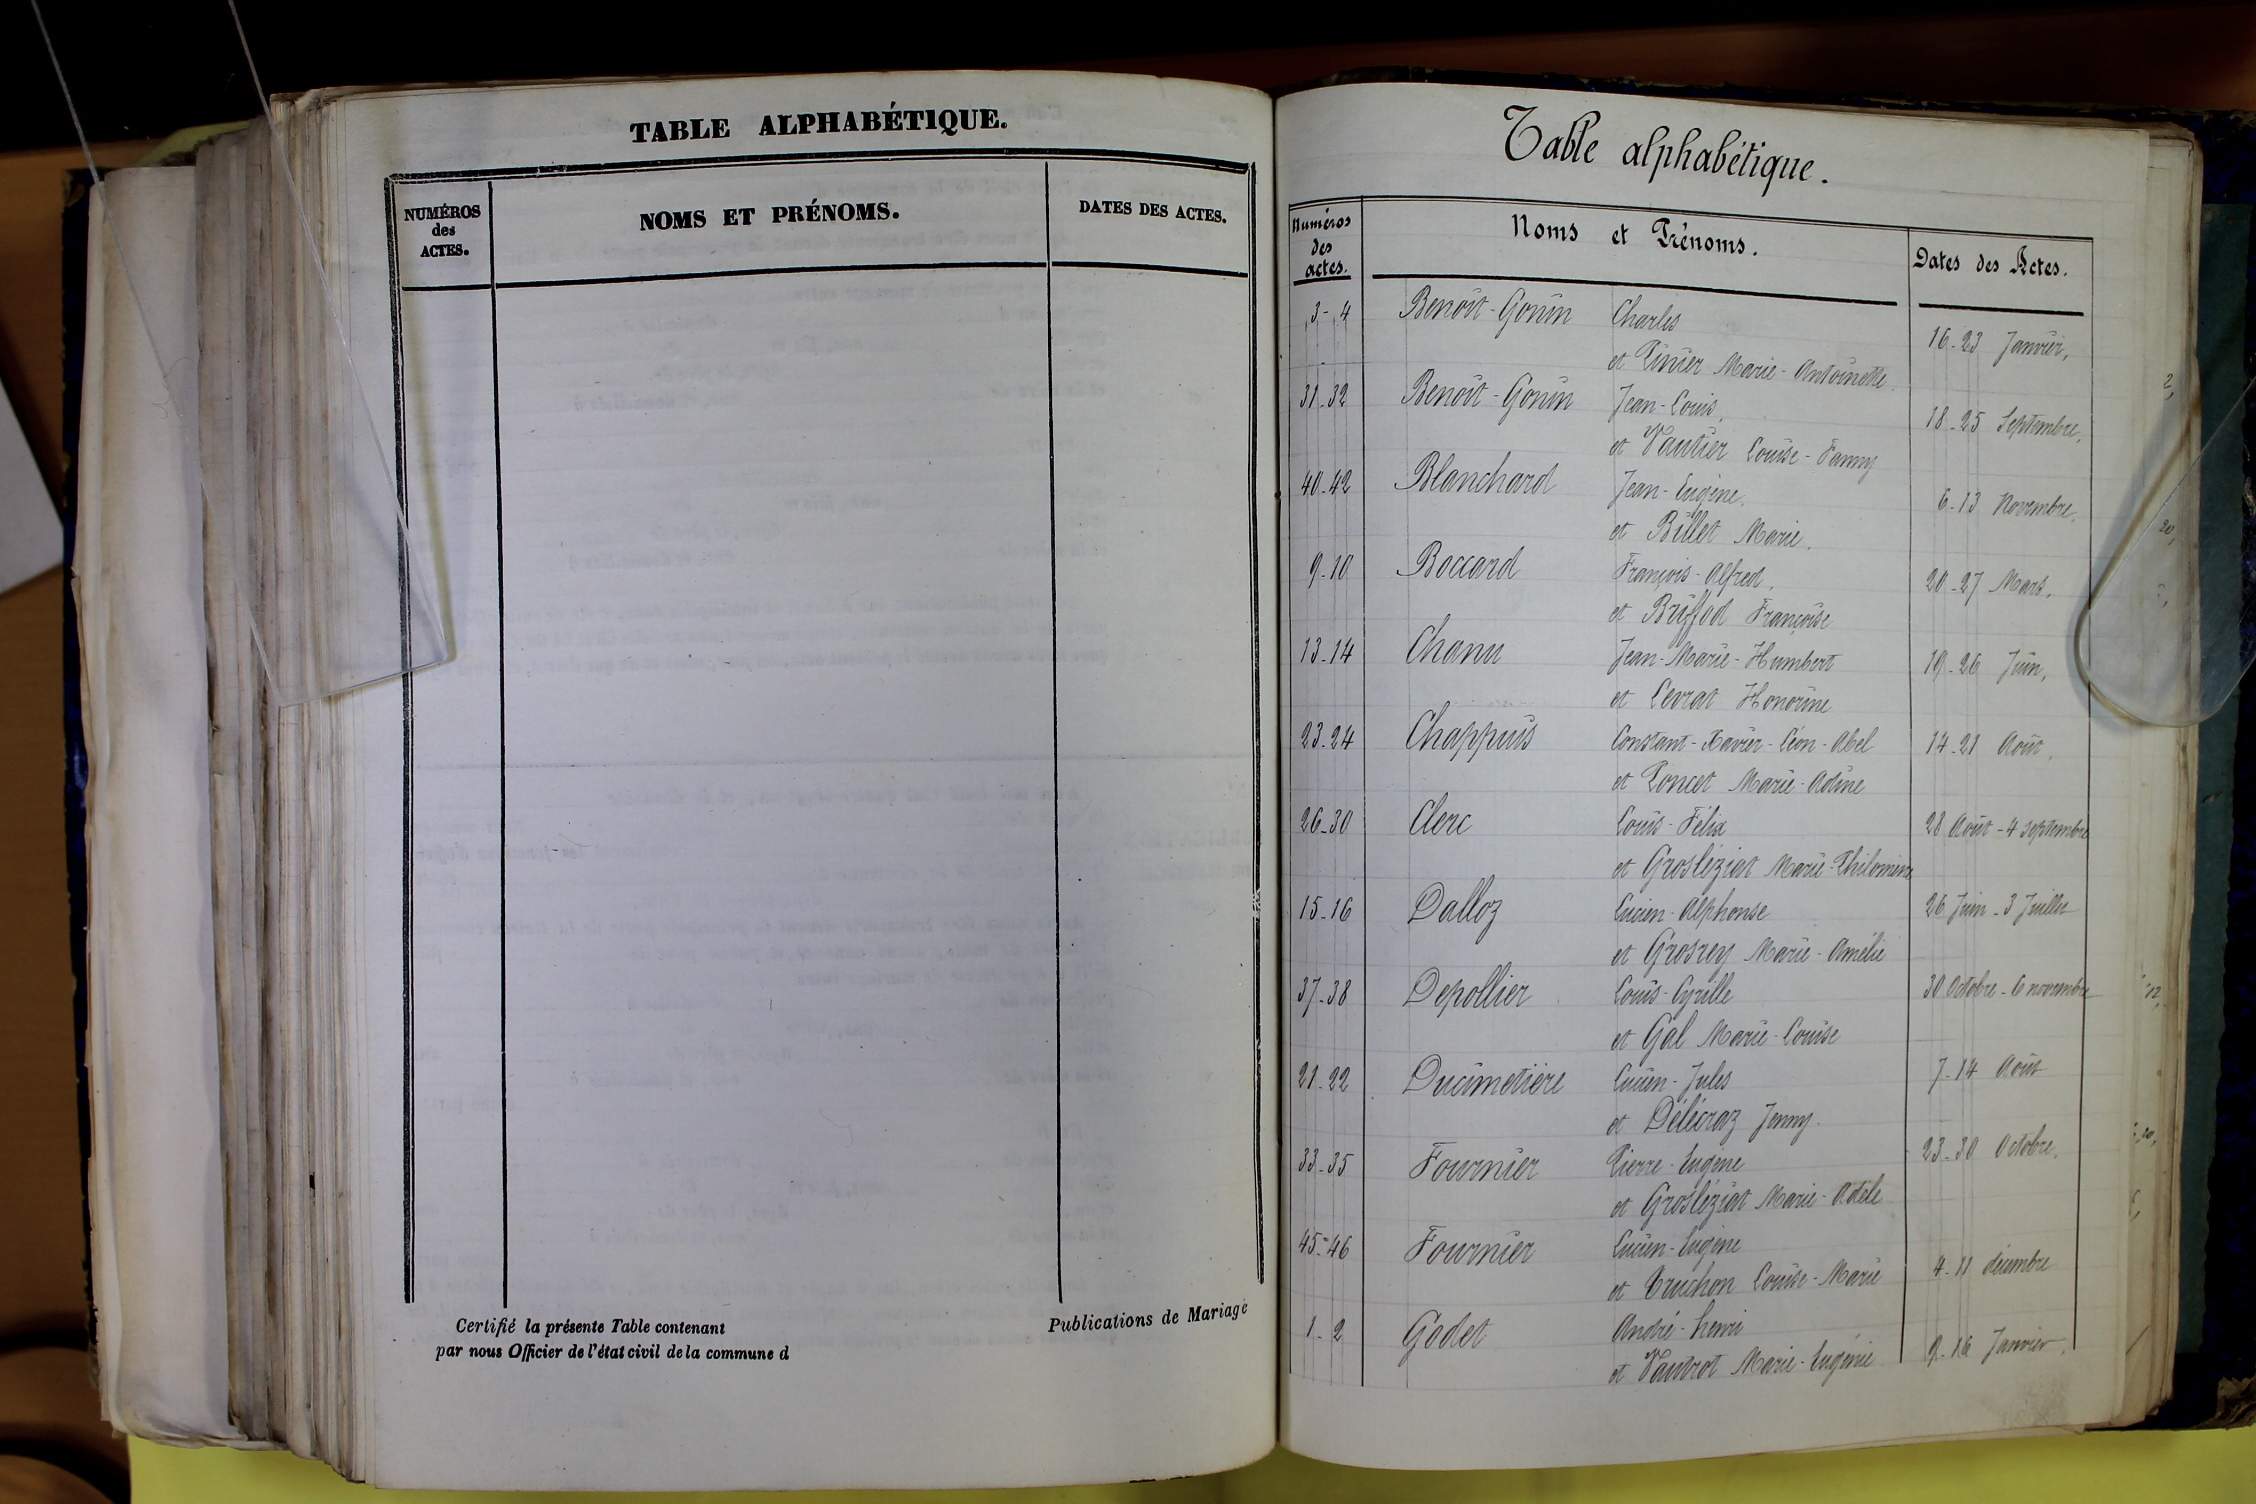 TABLE ALPHABÉTIQUE.
NUMÉROS
des
ACTES.
NOMS ET PRÉNOMS.
DATES DES ACTES.
Certifié la présente Table contenant
Publications de Mariage
par nous Officier de l'état civil de la commune d
Table alphabétique.
Numéros
des
actes.
Noms et Prénoms.
Dates des Actes.
3-4 Benoit-Gonin Charles 16-23 Janvier,
et Pinier Marie-Antoinette.
31-32 Benoit-Gonin Jean-Louis, 18-25 Septembre,
et Vautier Louise-Fanny
40-42 Blanchard Jean-Eugène. 6-13 Novembre.
et Billet Marie.
9-10 Boccard François-Alfred, 20-27 Mars,
et Briffod Françoise
13-14 Chanu Jean-Marie-Humbert 19-26 Juin,
et Levrat Honorine
23-24 Chappuis Constant-Xavier-Léon-Abel 14-21 Août,
et Poncet Marie-Adine
26-30 Clerc Louis-Félix 28 Août-4 septembre
et Grosléziat Marie-Philomène
15-16 Dalloz Lucien-Alphonse 26 Juin-3 Juillet
et Grosrey Marie-Amélie
37-38 Depollier Louis-Cyrille 30 Octobre-6 novembre
et Gal Marie-Louise
21-22 Ducimetière Lucien-Jules 7-14 Août
et Délécraz Jenny.
33-35 Fournier Pierre-Eugène 23-30 Octobre,
et Grosléziat Marie-Adèle
45-46 Fournier Lucien-Eugène 4-11 décembre
et Truchon Louise-Marie
1-2 Godet André-henri 9-16 Janvier.
et Vautrot Marie-Eugénie